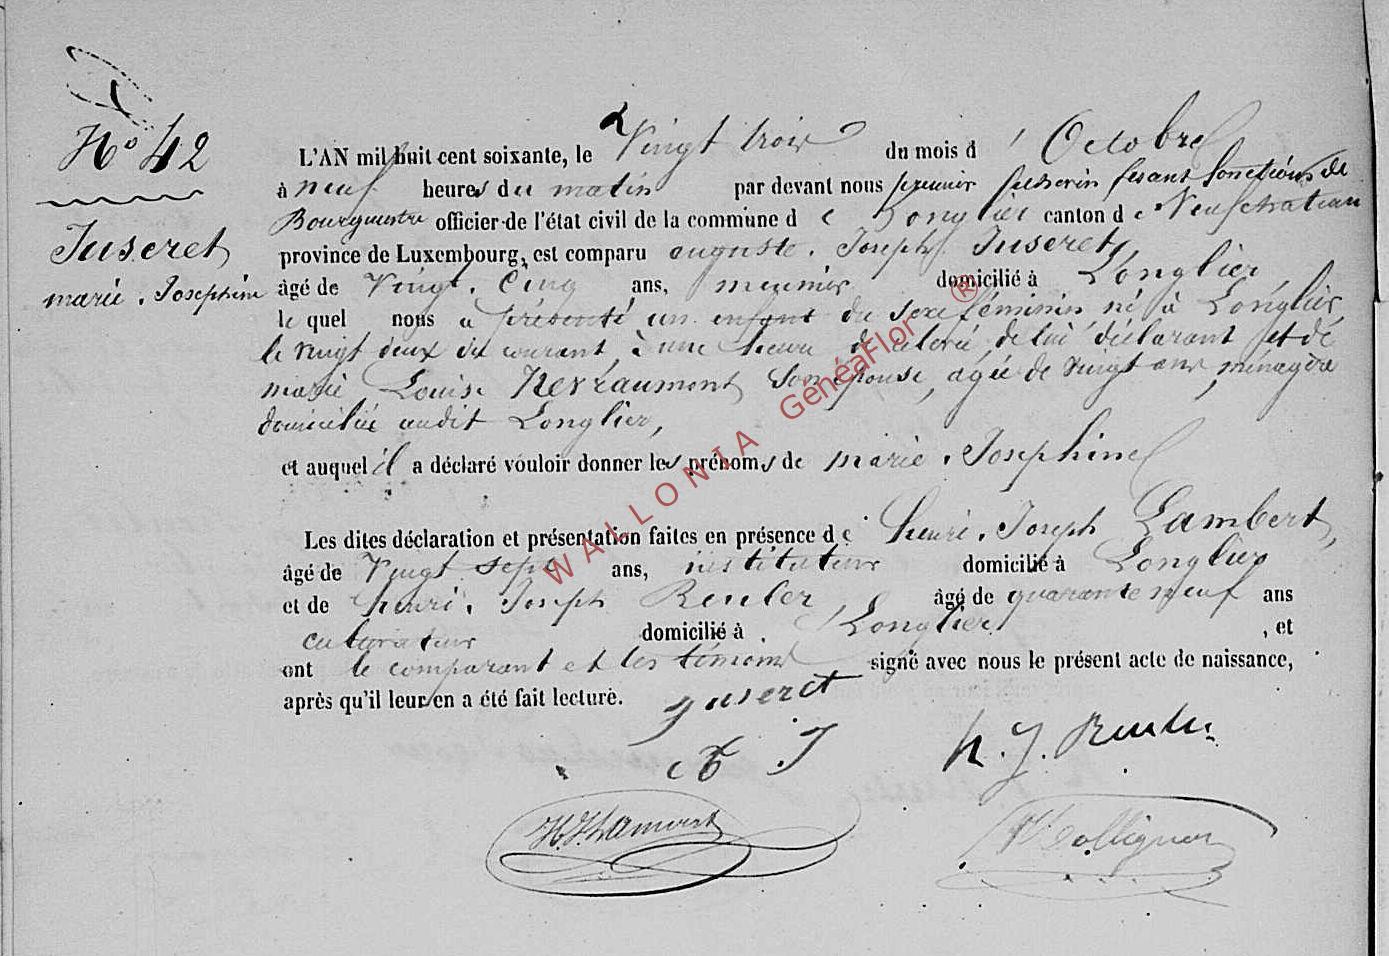 N° 42
Juseret
marie. Josephine
L'AN mil huit cent soixante, le Vingt trois du mois d' Octobre
à neuf heures du matin par devant nous premier fesant fonctions de
Bourgmestre officier de l'état civil de la commune de Longlier canton de Neufchateau
province de Luxembourg, est comparu auguste. Joseph Juseret,
âgé de Vingt. Cinq ans, meunier domicilié à Longlier
le quel nous a présenté un enfant du sexe féminin né à Longlier,
le vingt deux du courant, à une heure de de lui déclarant et de
marie Louise son épouse, agée de vingt ans, ménagère
domiciliée audit Longlier,
et auquel il a déclaré vouloir donner les prénoms de marie. Josephine
Les dites déclaration et présentation faites en présence de henri. Joseph Lambert,
âgé de Vingt sept ans, instituteur domicilié à Longlier
et de henri. Joseph Reuler, âgé de quarante neuf ans
cultivateur domicilié à Longlier , et
ont le comparant et les témoins signé avec nous le présent acte de naissance,
après qu'il leur en a été fait lecture. juseret
A J
h. J. Reuler
H. J. Lambert
Collignon
WALLONIA GénéaFlor ®